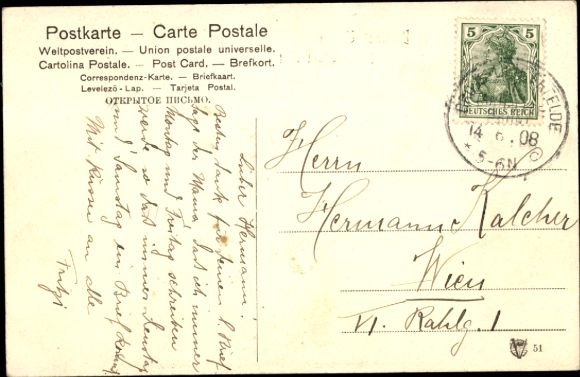 Postkarte — Carte Postale
Weltpostverein. — Union postale universelle.
Cartolina Postale. — Post Card. — Brefkort.
Correspondenz-Karte. — Briefkaart.
Levelező-Lap. — Tarjeta Postal.
ОТКРЫТОЕ ПИСЬМО.
5 5
DEUTSCHES REICH
14.6.08
* 5-6N
Lieber Hermann!
Besten Dank für deinen l. Brief.
sage der Mama, daß ich immer
Montag und Freitag schreiben
werde so daß immer Dienstag
und Samstag ein Brief
Mit Küssen an alle
Fritzi
Herrn
Hermann Kalcher
Wien
VI. Rahlg. 1
51